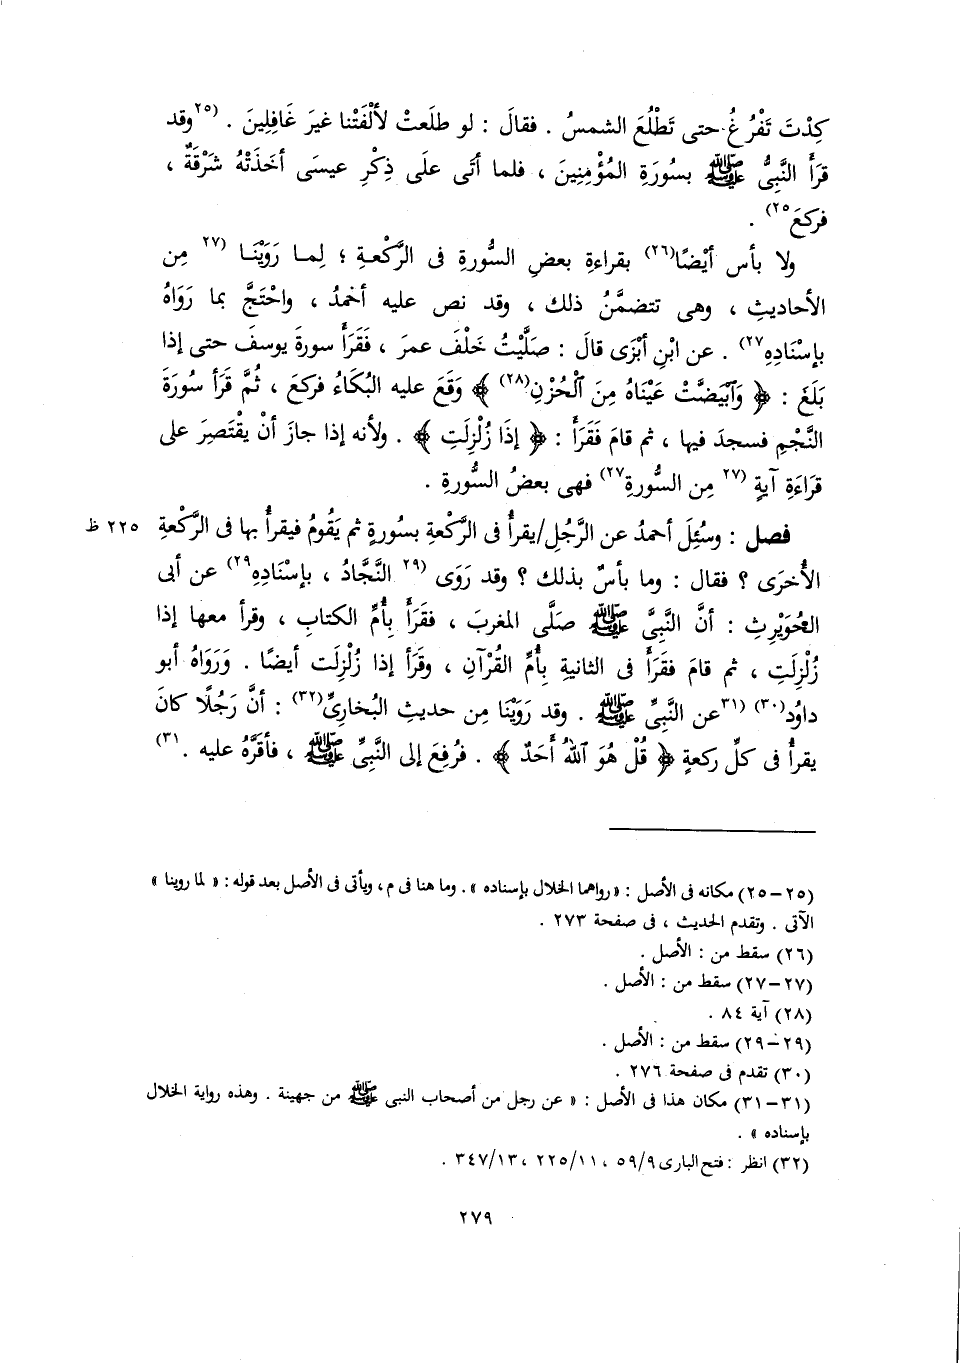 كِدْتَ تَفْرُغُ حتى تَطْلُعَ الشمسُ . فقالَ : لو طلَعتْ لألْفَتْنا غيرَ غَافِلِينَ . (٢٥وقد
قرَأَ النَّبِىُّ ﷺ بسُورَةِ المُؤْمِنِينَ ، فلما أتَى علَى ذِكْرِ عيسَى أخَذَتْهُ شَرْقَةٌ ،
فركعَ٢٥) .
ولا بأس أيْضًا(٢٦) بقراءةِ بعضِ السُّورةِ فى الرَّكْعةِ ؛ لِما رَوَيْنَا (٢٧ مِن
الأحاديثِ ، وهى تتضمَّنُ ذلك ، وقد نص عليه أحْمدُ ، واحْتَجَّ بما رَوَاهُ
بإسْنَادِهِ٢٧) . عن ابْنِ أبْزَى قالَ : صَلَّيْتُ خَلْفَ عمرَ ، فَقَرَأَ سورةَ يوسفَ حتى إذا
بَلَغَ : ﴿ وَٱبْيَضَّتْ عَيْنَاهُ مِنَ ٱلْحُزْنِ(٢٨) ﴾ وَقَعَ عليه البُكَاءُ فركعَ ، ثُمَّ قرَأ سُورَةَ
النَّجْمِ فسجدَ فيها ، ثم قامَ فَقَرَأَ : ﴿ إذَا زُلْزِلَتِ ﴾ . ولأنه إذا جازَ أنْ يقْتَصِرَ على
قراءَةِ آيةٍ (٢٧ مِن السُّورةِ٢٧) فهى بعضُ السُّورةِ .
فصل : وسُئِلَ أحمدُ عن الرَّجُلِ/يقرأُ فى الرَّكْعةِ بسُورةٍ ثم يَقُومُ فيقرأُ بها فى الرَّكْعةِ ٢٢٥ ظ
الأُخرَى ؟ فقال : وما بأسٌ بذلك ؟ وقد رَوَى (٢٩ النَّجَّادُ ، بإسْنَادِهِ٢٩) عن أبى
الحُوَيْرِثِ : أنَّ النَّبِىَّ ﷺ صَلَّى المغربَ ، فقَرَأَ بِأُمِّ الكتابِ ، وقرأ معها إذا
زُلْزِلَتِ ، ثم قامَ فقَرَأَ فى الثانيةِ بِأُمِّ القُرْآنِ ، وقرَأ إذا زُلْزِلَت أيضًا . وَرَوَاهُ أبو
داوُد(٣٠) (٣١عن النَّبِىِّ ﷺ . وقد رَوَيْنَا مِن حديثِ البُخارِىِّ(٣٢) : أنَّ رَجُلًا كانَ
يقرأُ فى كلِّ ركعةٍ ﴿ قُلْ هُوَ ٱللهُ أَحَدٌ ﴾ . فرُفِعَ إلى النَّبِىِّ ﷺ ، فأقَرَّهُ عليه .٣١)
(٢٥-٢٥) مكانه فى الأصل : « رواهما الخلال بإسناده » . وما هنا فى م ، ويأتى فى الأصل بعد قوله : « لما روينا »
الآتى . وتقدم الحديث ، فى صفحة ٢٧٣ .
(٢٦) سقط من : الأصل .
(٢٧-٢٧) سقط من : الأصل .
(٢٨) آية ٨٤ .
(٢٩-٢٩) سقط من : الأصل .
(٣٠) تقدم فى صفحة ٢٧٦ .
(٣١-٣١) مكان هذا فى الأصل : « عن رجل من أصحاب النبى ﷺ من جهينة . وهذه رواية الخلال
بإسناده » .
(٣٢) انظر : فتح البارى ٥٩/٩ ، ٢٢٥/١١ ، ٣٤٧/١٣ .
٢٧٩